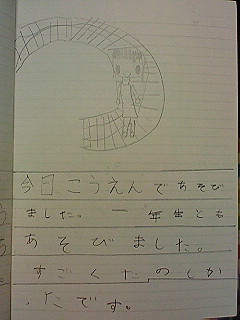 今日こうえんであそび
ました。一年生とも
あそびました。
すごくたのしか
ったです。